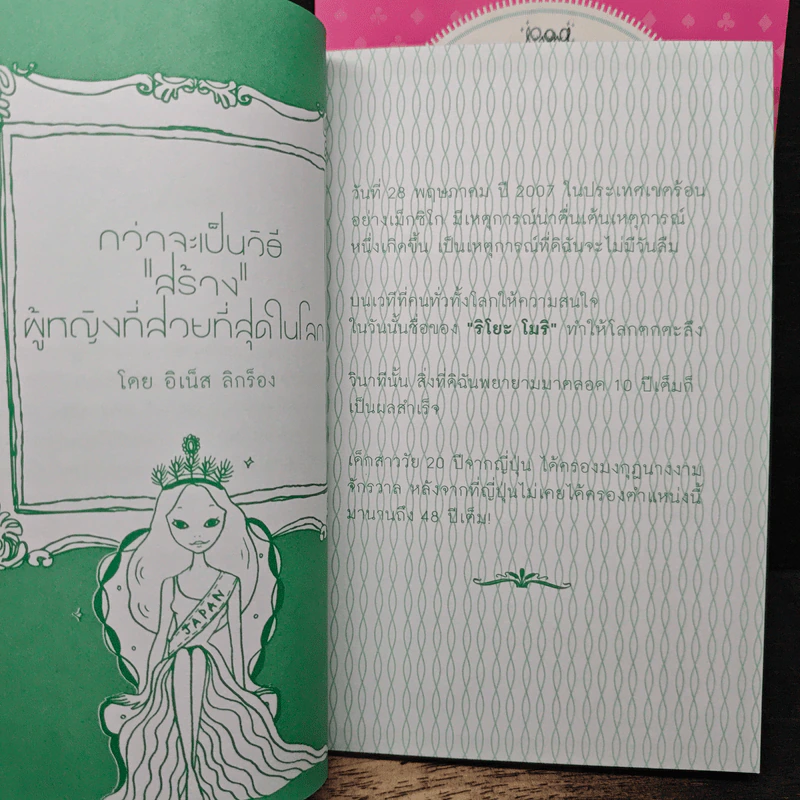 กว่าจะเป็นวิธี
"สร้าง"
ผู้หญิงที่สวยที่สุดในโลก
โดย อิเน็ส ลิกร็อง
JAPAN
วันที่ 28 พฤษภาคม ปี 2007 ในประเทศเขตร้อน
อย่างเม็กซิโก มีเหตุการณ์น่าตื่นเต้นเหตุการณ์
หนึ่งเกิดขึ้น เป็นเหตุการณ์ที่ดิฉันจะไม่มีวันลืม
บนเวทีที่คนทั่วทั้งโลกให้ความสนใจ
ในวันนั้นชื่อของ "ริโยะ โมริ" ทำให้โลกตกตะลึง
วินาทีนั้น สิ่งที่ดิฉันพยายามมาตลอด 10 ปีเต็มก็
เป็นผลสำเร็จ
เด็กสาววัย 20 ปีจากญี่ปุ่น ได้ครองมงกุฎนางงาม
จักรวาล หลังจากที่ญี่ปุ่นไม่เคยได้ครองตำแหน่งนี้
มานานถึง 48 ปีเต็ม!